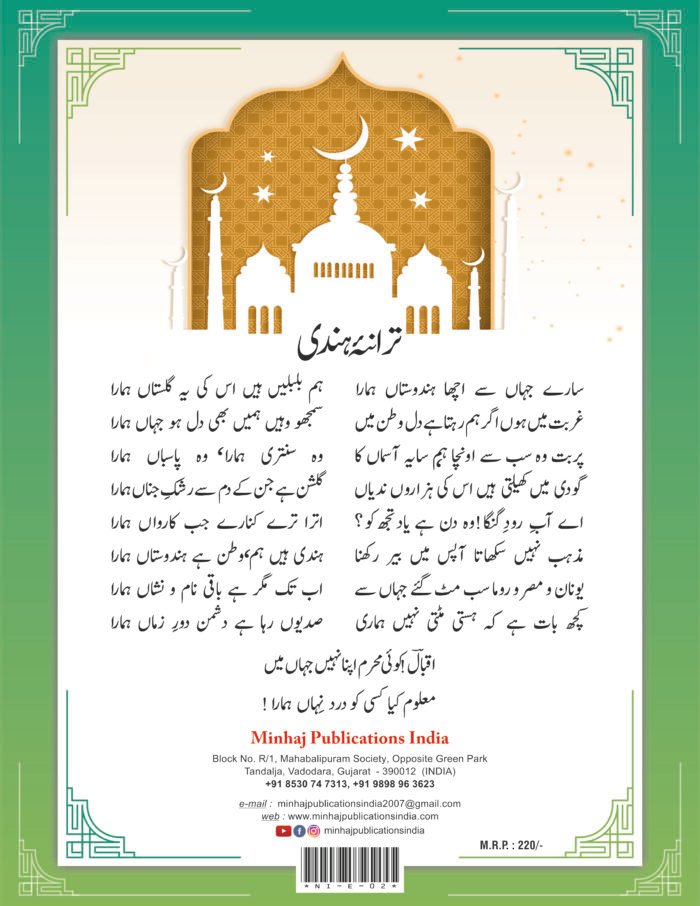 ترانۂ ہندی
سارے جہاں سے اچھا ہندوستاں ہمارا ہم بلبلیں ہیں اس کی یہ گلستاں ہمارا
غربت میں ہوں اگر ہم رہتا ہے دل وطن میں سمجھو وہیں ہمیں بھی دل ہو جہاں ہمارا
پربت وہ سب سے اونچا ہم سایہ آسماں کا وہ سنتری ہمارا، وہ پاسباں ہمارا
گودی میں کھیلتی ہیں اس کی ہزاروں ندیاں گلشن ہے جن کے دم سے رشکِ جناں ہمارا
اے آبِ رودِ گنگا! وہ دن ہے یاد تجھ کو؟ اترا ترے کنارے جب کارواں ہمارا
مذہب نہیں سکھاتا آپس میں بیر رکھنا ہندی ہیں ہم، وطن ہے ہندوستاں ہمارا
یونان و مصر و روما سب مٹ گئے جہاں سے اب تک مگر ہے باقی نام و نشاں ہمارا
کچھ بات ہے کہ ہستی مٹتی نہیں ہماری صدیوں رہا ہے دشمن دورِ زماں ہمارا
اقبالؔ! کوئی محرم اپنا نہیں جہاں میں
معلوم کیا کسی کو دردِ نِہاں ہمارا !
Minhaj Publications India
Block No. R/1, Mahabalipuram Society, Opposite Green Park
Tandalja, Vadodara, Gujarat - 390012 (INDIA)
+91 8530 74 7313, +91 9898 96 3623
e-mail : minhajpublicationsindia2007@gmail.com
web : www.minhajpublicationsindia.com
minhajpublicationsindia
M.R.P. : 220/-
*NI-E-02*